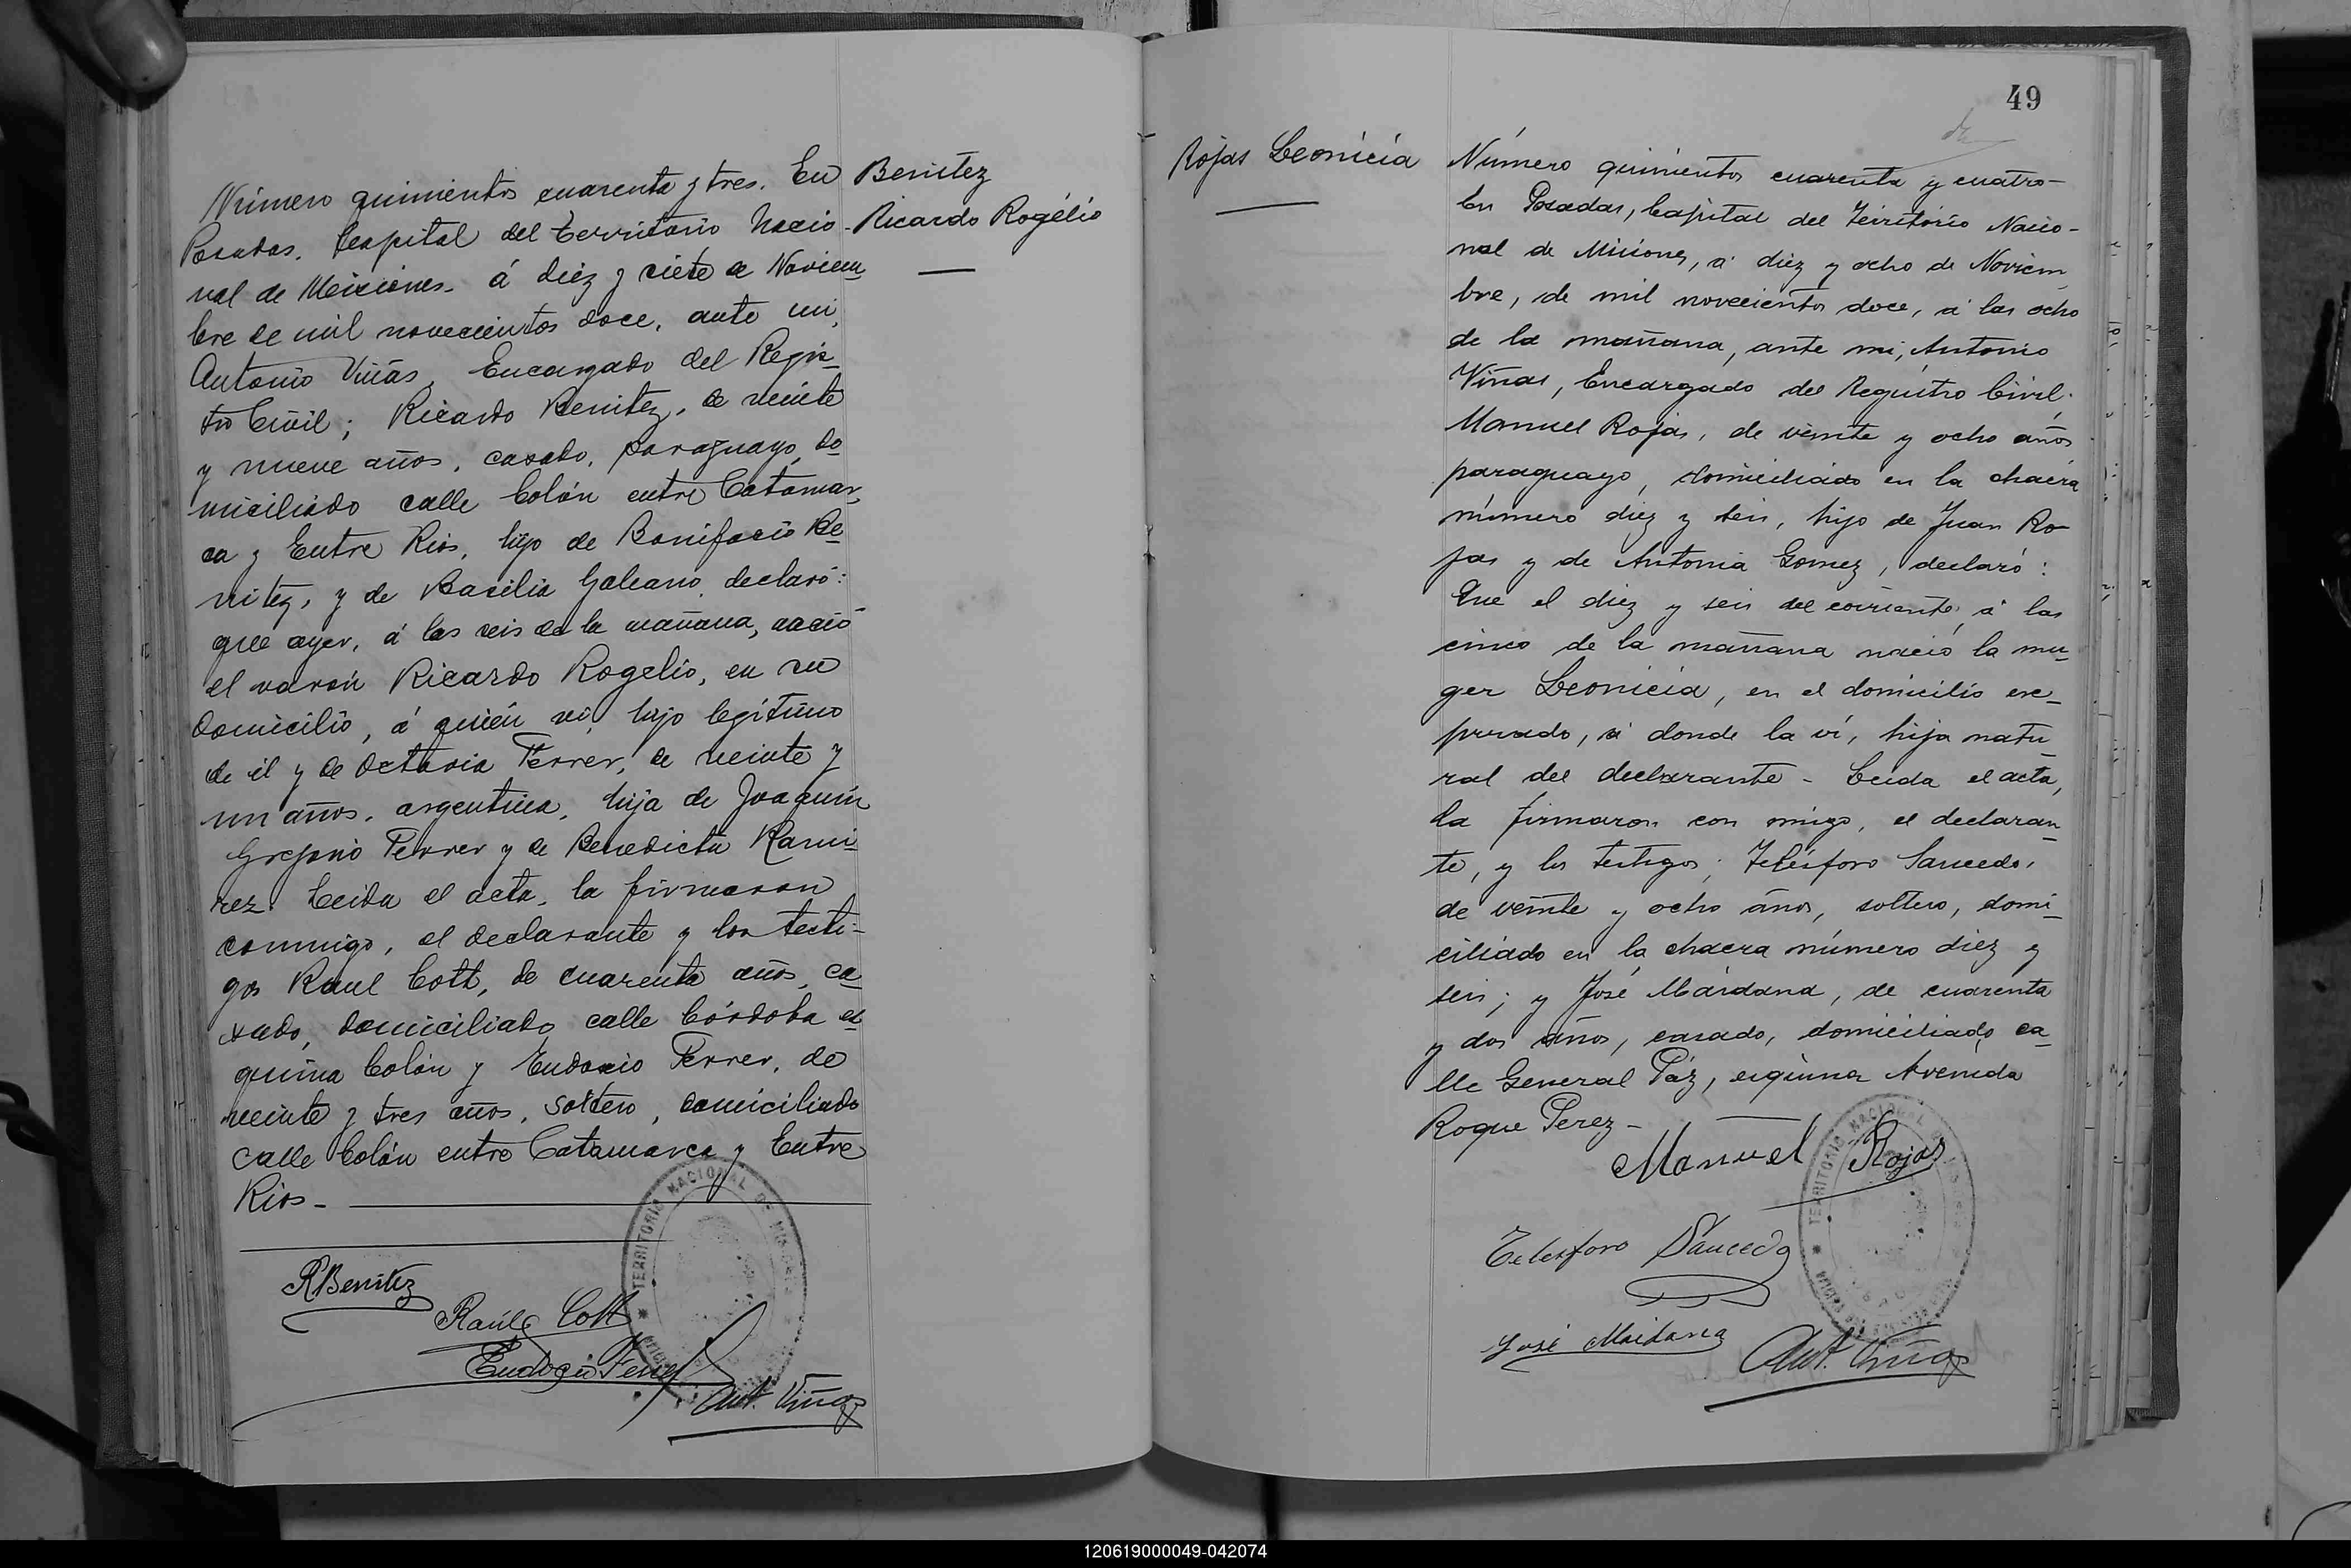 Número quinientos cuarenta y tres. En
Posadas, Capital del Territorio Nacio-
nal de Misiones, á diez y siete de Noviem
bre de mil novecientos doce, ante mi,
Antonio Viñas, Encargado del Regis-
tro Civil; Ricardo Benitez, de veinte
y nueve años, casado, paraguayo, do
miciliado calle Colón entre Catamar,
ca y Entre Rios, hijo de Bonifacio Be
nitez, y de Basilia Galeano, declaró:
que ayer, á las seis de la mañana, nació
el varón Ricardo Rogelio, en su
domicilio, á quién ví, hijo legítimo
de él y de Octavia Ferrer, de veinte y
un años, argentina, hija de Joaquin
Gregorio Ferrer y de Benedicta Rami-
rez. Leida el acta, la firmaron
conmigo, el declarante y los testi-
gos Raul Cott, de cuarenta años, ca
sado, domiciliado calle Córdoba es
quina Colón y Eudocio Ferrer, de
veinte y tres años, soltero, domiciliado
calle Colón entre Catamarca y Entre
Rios -
Benitez
Ricardo Rogélio
RBenitez
Raúl Cott
Ferrer
Ant. Viñas
TERRITORIO NACIONAL DE MISIONES
49
Rojas Leonicia
Número quinientos cuarenta y cuatro-
En Posadas, Capital del Territorio Nacio-
nal de Misiones, á diez y ocho de Noviem
bre, de mil novecientos doce, á las ocho
de la mañana, ante mi, Antonio
Viñas, Encargado del Registro Civil.
Manuel Rojas, de veinte y ocho años
paraguayo, domiciliado en la chacra
número diez y seis, hijo de Juan Ro-
jas y de Antonia Gomez, declaró:
Que el diez y seis del corriente, á las
cinco de la mañana nació la mu-
ger Leonicia, en el domicilio ex-
presado, á donde la ví, hija natu
ral del declarante - Leida el acta,
la firmaron con migo, el declaran
te, y los testigos; Telésforo Saucedo,
de veinte y ocho años, soltero, domi-
ciliado en la chacra número diez y
seis; y José Maidana, de cuarenta
y dos años, casado, domiciliado ca-
lle General Páz, esquina Avenida
Roque Perez -
Manuel Rojas
Telesforo Saucedo
José Maidana
Ant. Viñas
TERRITORIO NACIONAL
120619000049-042074